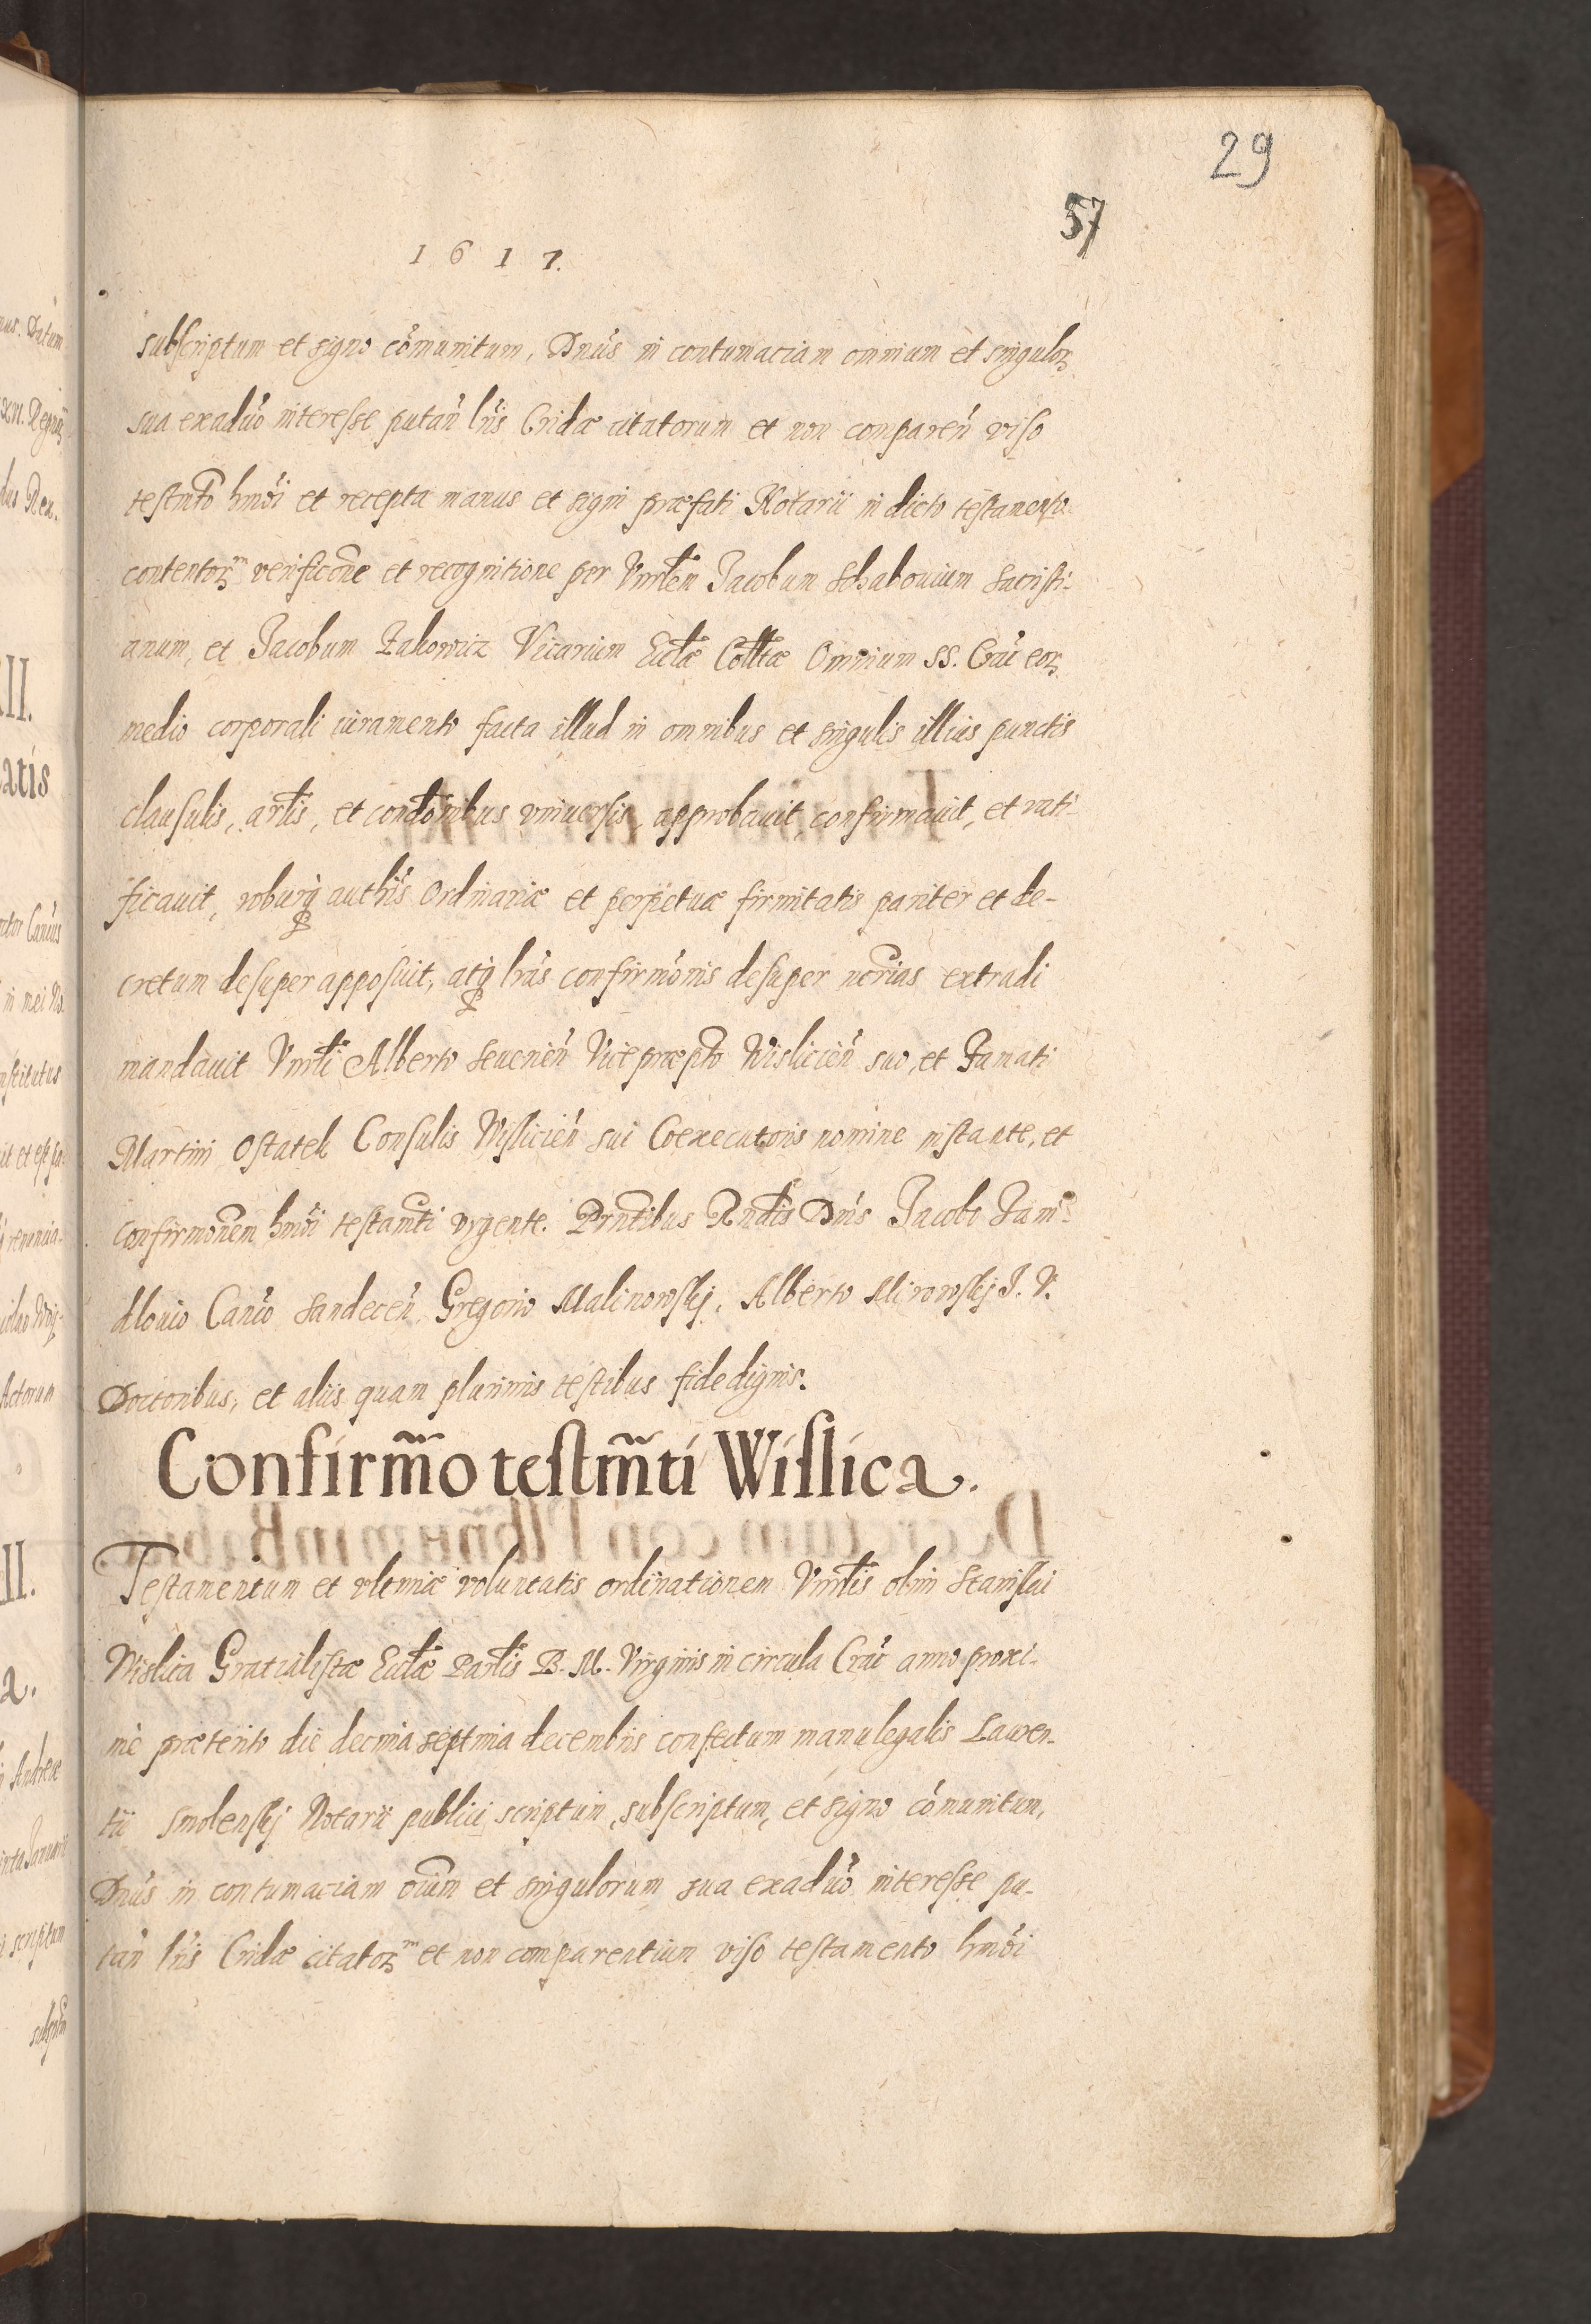 29
57
1617.
subscriptum et signo cõmunitum, Dnũs in contumaciam omnium et singuloꝝ
sua exaduõ interesse putañ lr̃is Cridæ citatorum et non compareñ viso
testmẽto hmõi et recepta manus et signi præfati Notarii in dicto testamento
contentoꝝᵐ verificõne et recognitione per Vnrb̃lem Jacobum Schabouium Sacristi-
anum, et Jacobum Zakowicz Vicarium Eccl̃æ Coll̃tæ Omnium SS. Crac̃ eoꝝ
medio corporali iuramento facta illud in omnibus et singulis illius punctis
clausulis, artl̃is, et condõnibus vniuersis, approbauit, confirmauit, et rati-
ficauit, roburq̃ authtĩs Ordinariæ et perpetuæ firmitatis pariter et de-
cretum desuper apposuit, atq̃ lr̃as confirmõnis desuper necr̃ias extradi
mandauit Vnrb̃li Alberto Seueneñ Vicepræpto Wisliceñ suo, et Famati
Martini Ostatek Consulis Wisliceñ sui Coexecutoris nomine instante, et
confirmõnem hmõi testamt̃i vrgente. Prñtibus Rndĩs Dnĩs Jacobo Jam-
dlouio Canc̃o Sandeceñ, Gregorio Malinowskj, Alberto Mirowskj J. V.
Doctoribus, et aliis quam plurimis testibus fidedignis.
Confirm̃o testm̃ti Wislica.
Testamentum et vltimæ voluntatis ordinationem Vnrb̃lis olim Stanislai
Wislica Gratialistæ Eccl̃æ Parl̃is B. M. Virginis in circula Crac̃ anno proxi-
mè præterito die decima septima decembris confectum manu legalis Lauren-
tii Smolenskj Notarii publici scriptum, subscriptum, et signo cõmunitum,
Dnũs in contumaciam oĩum et singulorum sua exaduõ interesse pu-
tañ lr̃is Cridæ citatoꝝᵐ et non comparentium viso testamento hmõi